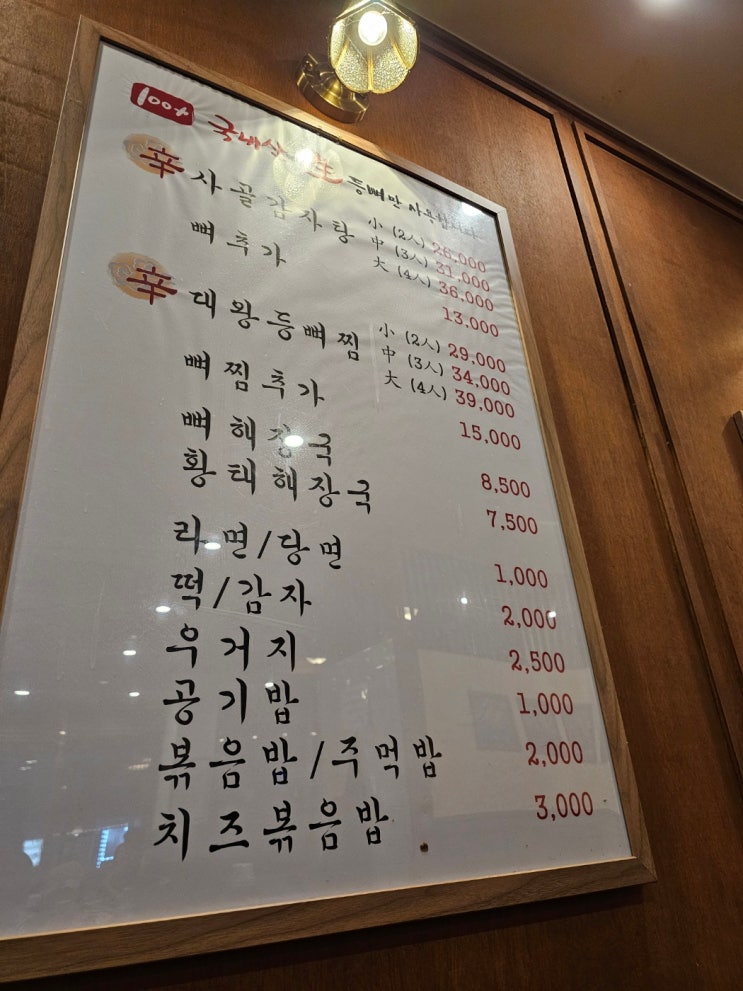 100% 국내산 生 등뼈만 사용합니다
辛 사골감자탕 小 (2人) 26,000
中 (3人) 31,000
大 (4人) 36,000
뼈추가 13,000
辛 대왕등뼈찜 小 (2人) 29,000
中 (3人) 34,000
大 (4人) 39,000
뼈찜추가 15,000
뼈해장국 8,500
황태해장국 7,500
라면/당면 1,000
떡/감자 2,000
우거지 2,500
공기밥 1,000
볶음밥/주먹밥 2,000
치즈볶음밥 3,000